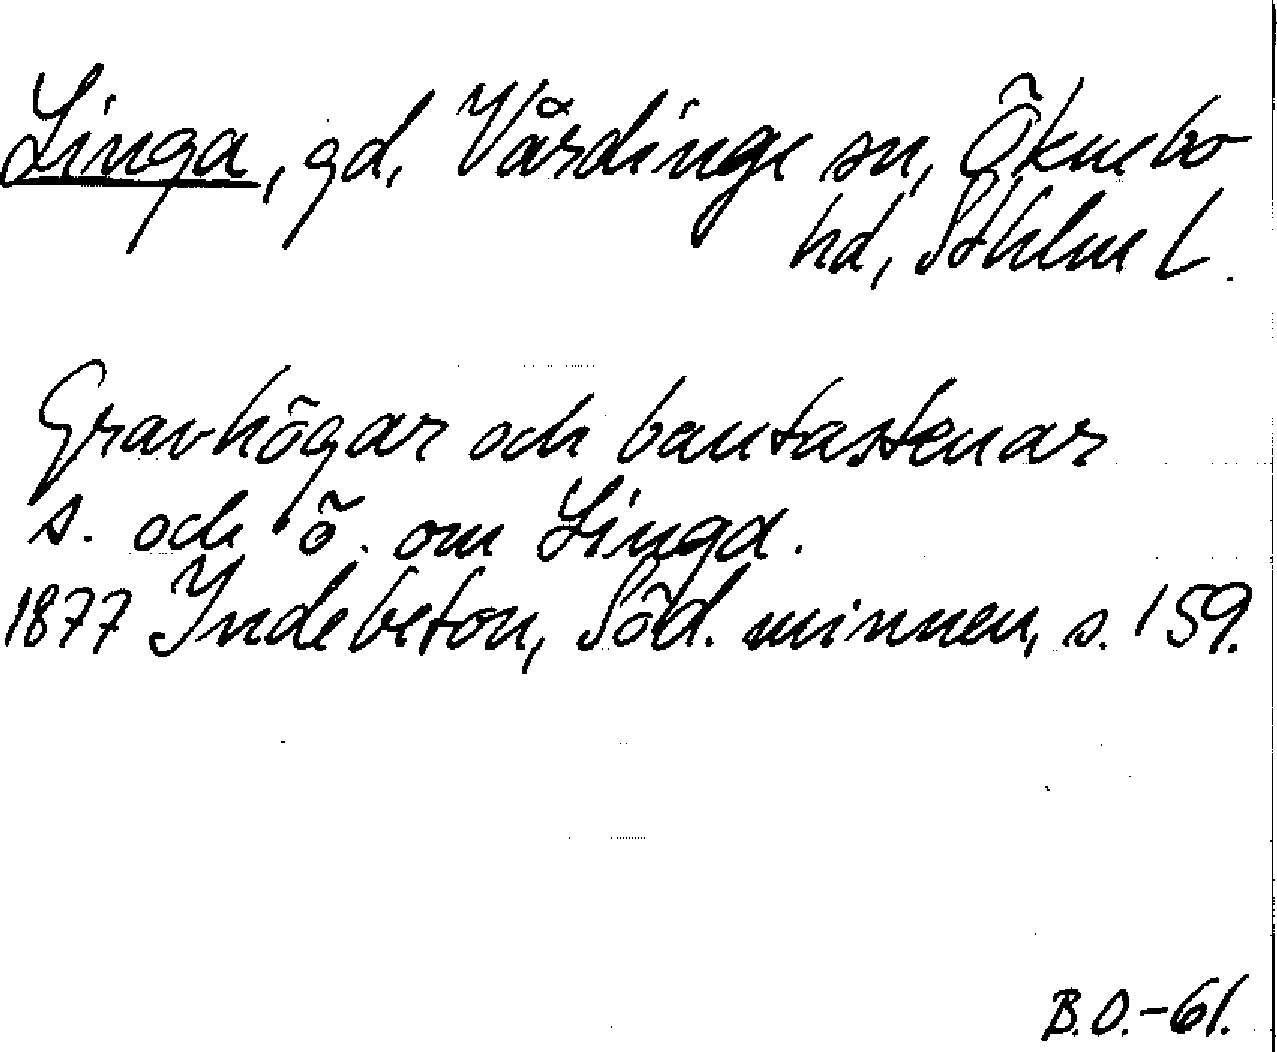 Linga, gd, Vårdinge sn, Öknebo
hd, Sthlm L.
Gravhögar och bautastenar
s. och ö. om Linga.
1877 Indebetou, Söd. minnen, s. 159.
B.O.-61.